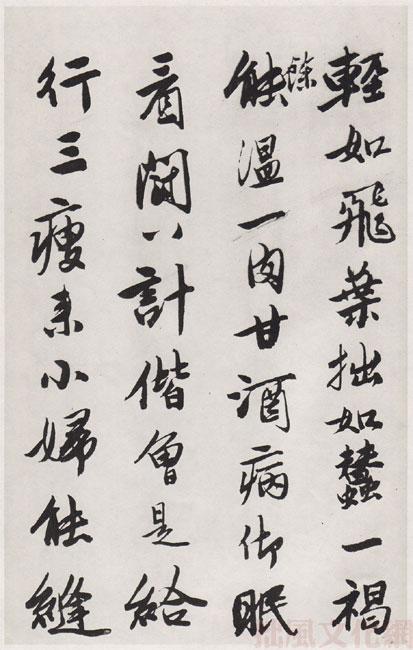 輕如飛葉拙如蠶一褐
能餘溫一肉甘酒病御眠
看闘八計偕曾是給
行三瘦来小婦能縫
拙風文化網